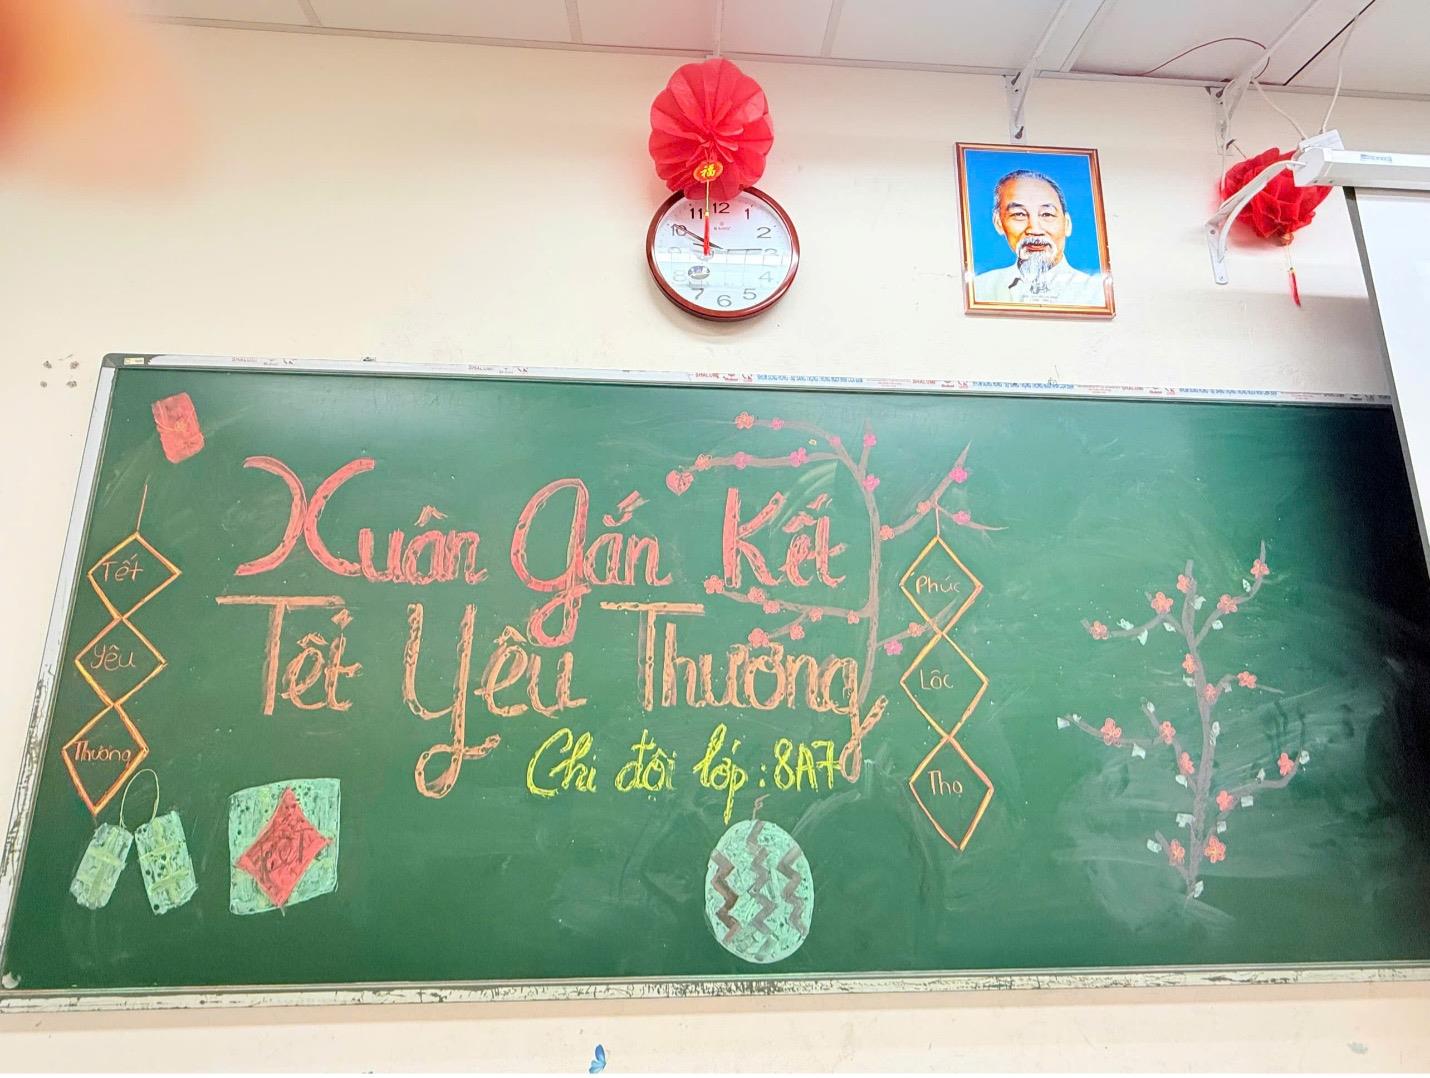 福
11 12 1
10 2
3
8 4
7 6 5
Xuân Gắn Kết
Tết Yêu Thương
Chi đội lớp: 8A7
Tết
Yêu
Thương
Phúc
Lộc
Thọ
TẾT